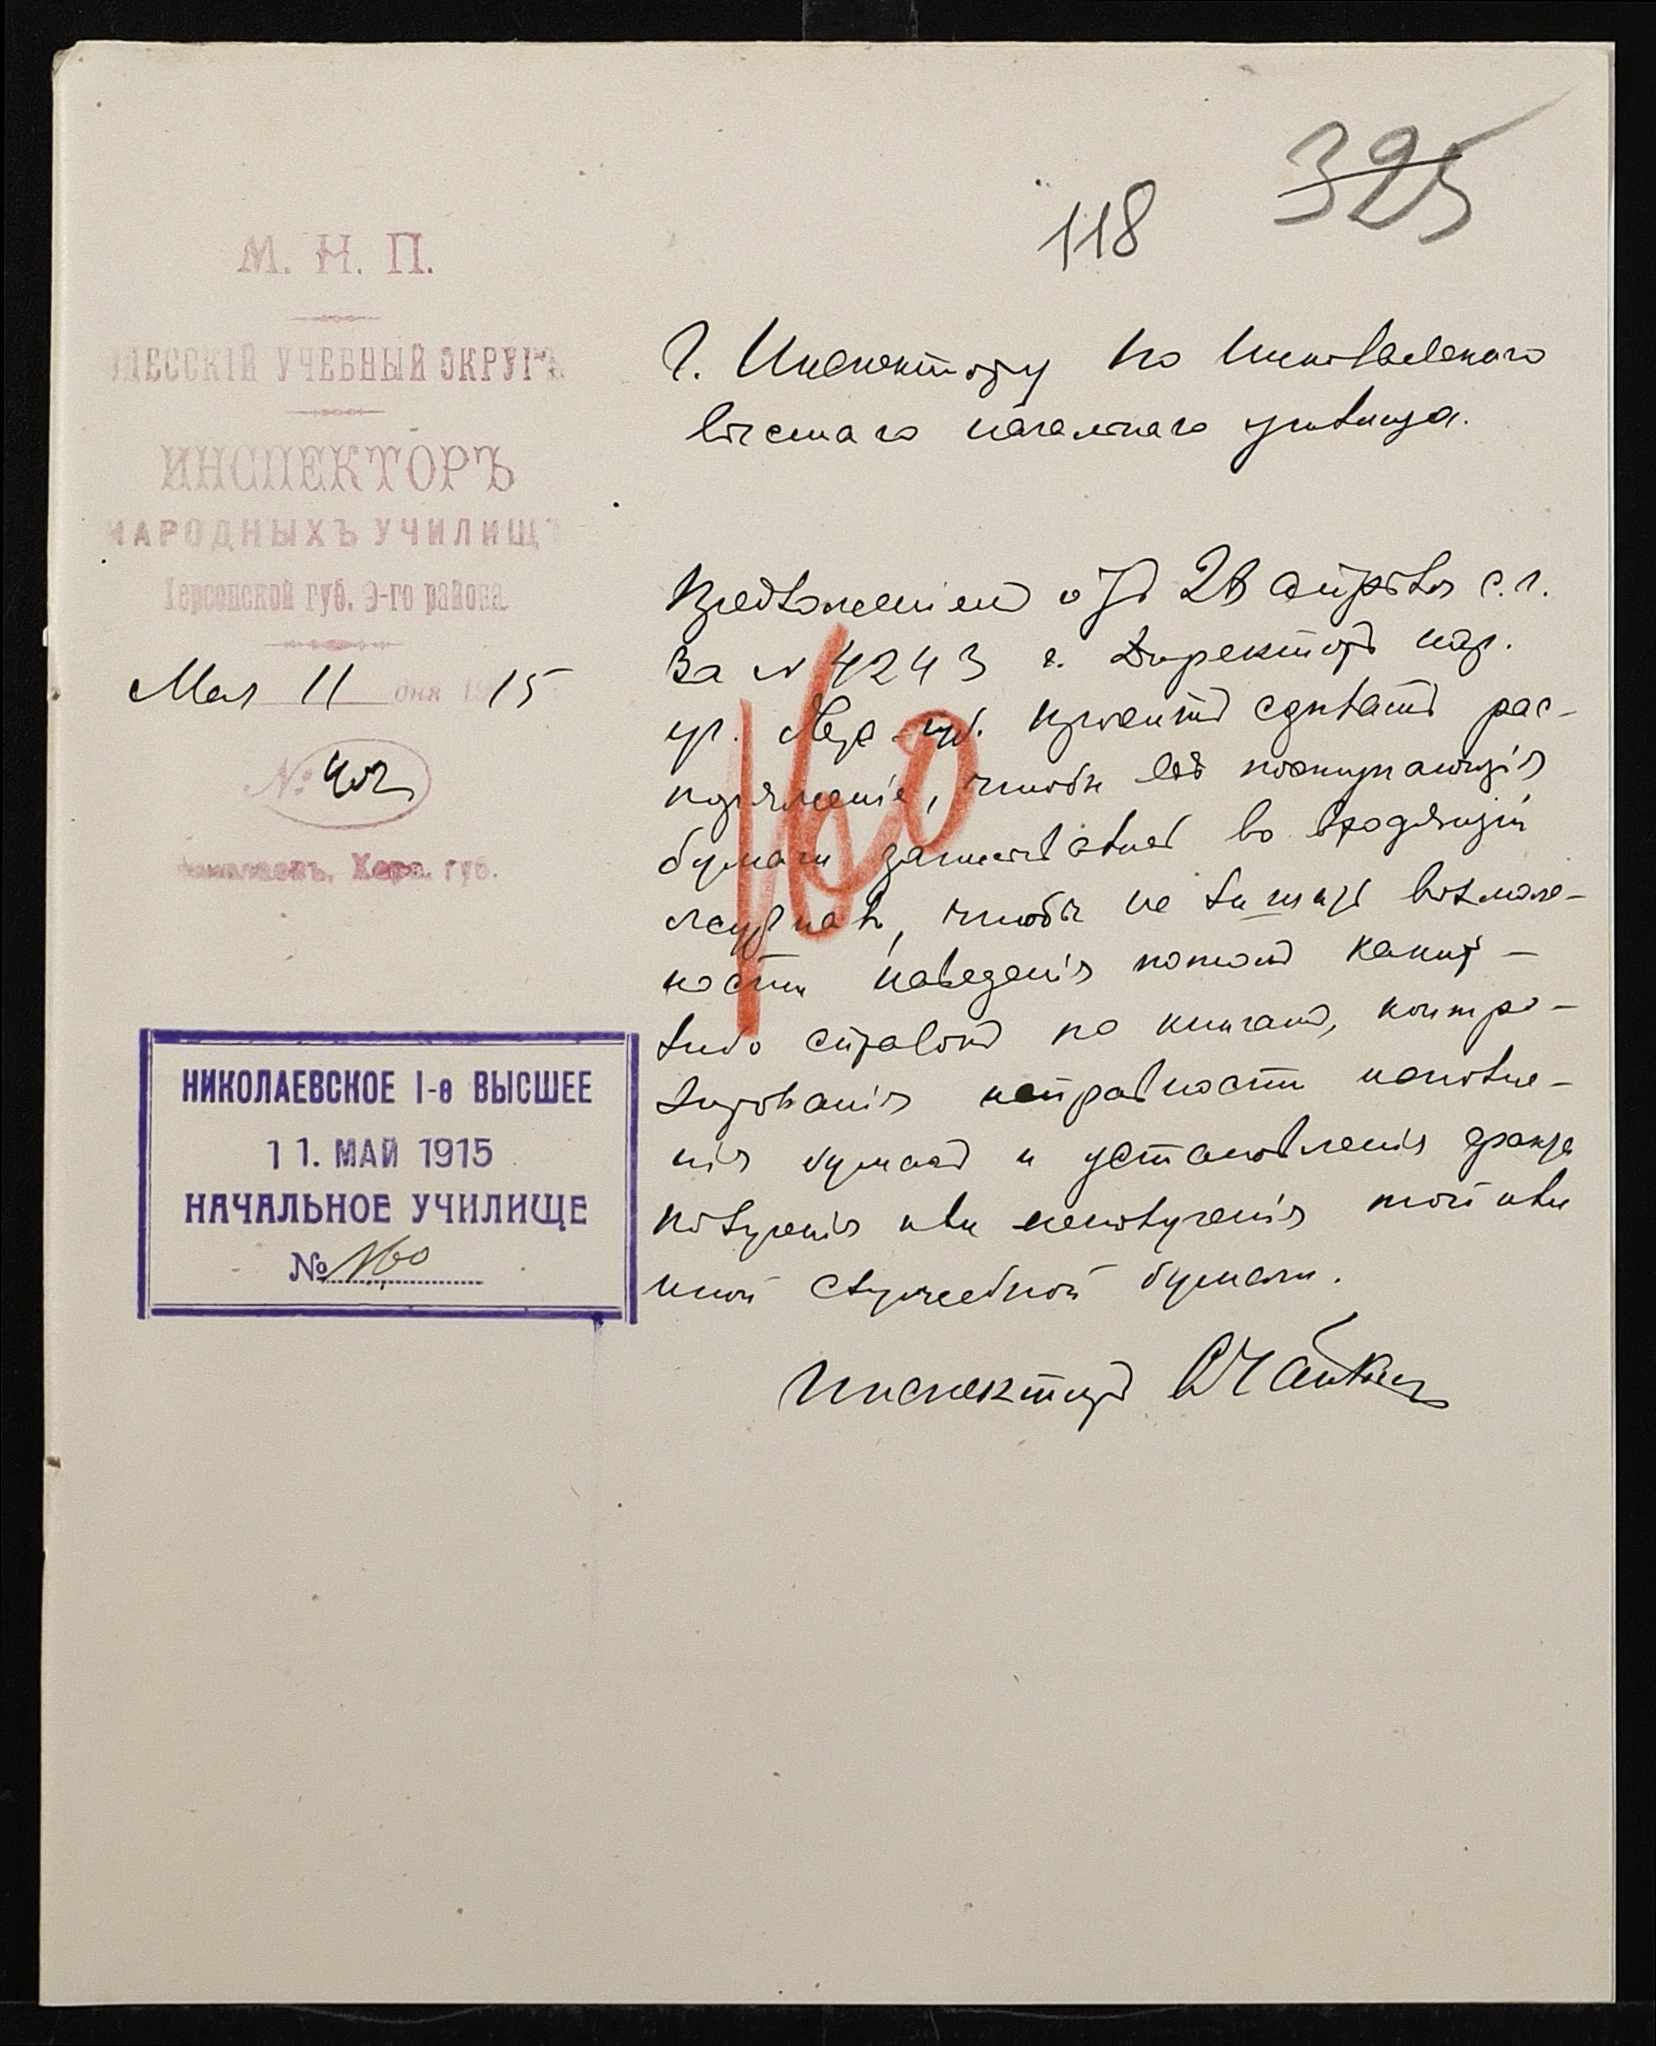 325
118
М. Н. П.
ОДЕССКІЙ УЧЕБНЫЙ ОКРУГЪ
ИНСПЕКТОРЪ
НАРОДНЫХЪ УЧИЛИЩЪ
Херсонской губ. 9-го района
Мая 11 дня 1915
№ 402
Николаевъ, Херс. губ.
Г. Инспектору 1го Николаевскаго
высшаго начальнаго училища.
Предложеніемъ отъ 28 апрѣля с. г.
за № 4243 г. Директоръ нар.
уч. Хер. губ. проситъ сдѣлать рас-
поряженіе, чтобы всѣ поступающія
бумаги записывались во входящій
журналъ, чтобы не лишать возмож-
ности наведенія потомъ какихъ-
либо справокъ по книгамъ, контро-
лированія исправности исполне-
нія бумагъ и установленія факта
полученія или неполученія той или
иной служебной бумаги.
Инспекторъ
160
НИКОЛАЕВСКОЕ I-е ВЫСШЕЕ
11. МАЙ 1915
НАЧАЛЬНОЕ УЧИЛИЩЕ
№ 160